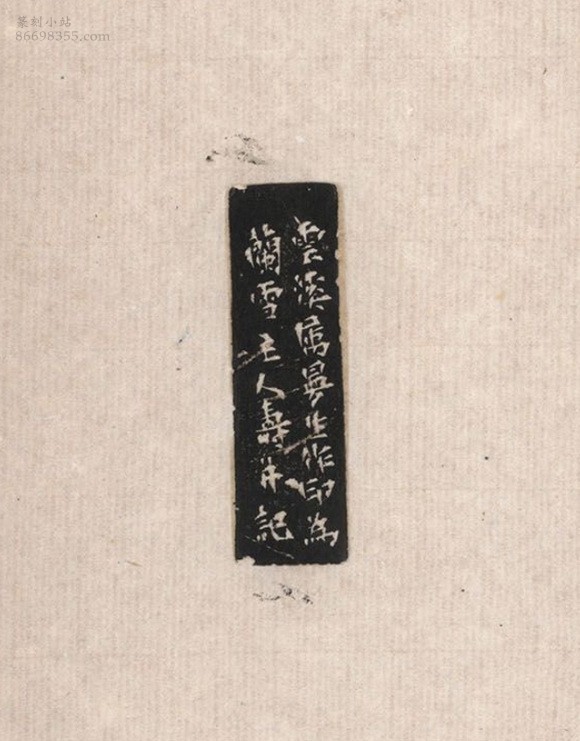 篆刻小站
86698355.com
雲溪屬曼生作印為
蘭雪主人壽并記